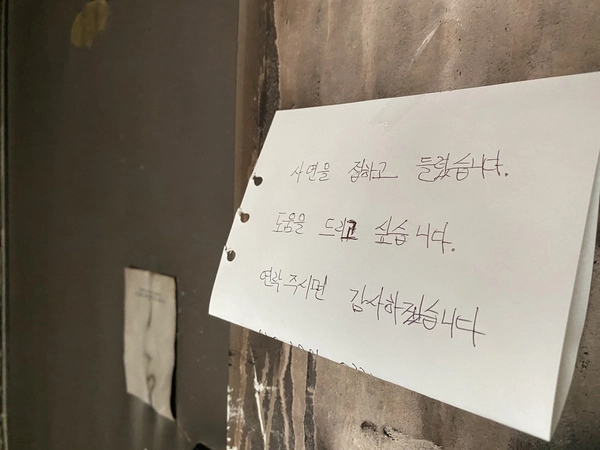 사연을 접하고 들렀습니다.
도움을 드리고 싶습니다.
연락주시면 감사하겠습니다